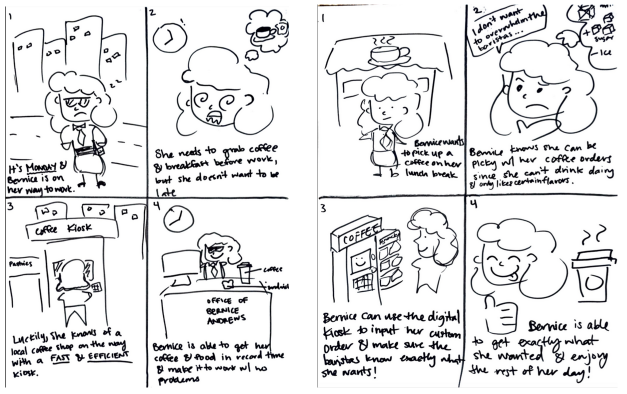 1
It's MONDAY &
Bernice is on
her way to work.
2
She needs to grab coffee
& breakfast before work,
but she doesn't want to be
late
3
coffee Kiosk
Pastries
Luckily, she knows of a
local coffee shop on the way
with a FAST & EFFICIENT
kiosk.
4
coffee
sandwich
OFFICE OF
BERNICE
ANDREWS
Bernice is able to get her
coffee & food in record time
& make it to work w/ no
problems
1
Bernice wants
to pick up a
coffee on her
lunch break.
2
I don't want
to overwhelm the
baristas...
sugar
- ICE
Bernice knows she can be
picky w/ her coffee orders
since she can't drink dairy
& only likes certain flavors.
3
COFFEE
Bernice can use the digital
kiosk to input her custom
order & make sure the
baristas know exactly what
she wants!
4
Bernice is able
to get exactly what
she wanted & enjoy
the rest of her day!